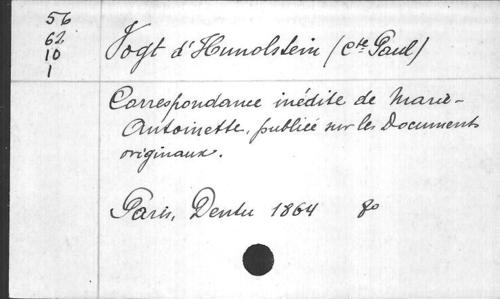 56
62
10
1
Vogt d'Hunolstein (Cte Paul)
Correspondance inédite de Marie-
Antoinette, publiée sur les Documents
originaux.
Paris, Dentu 1864 8o